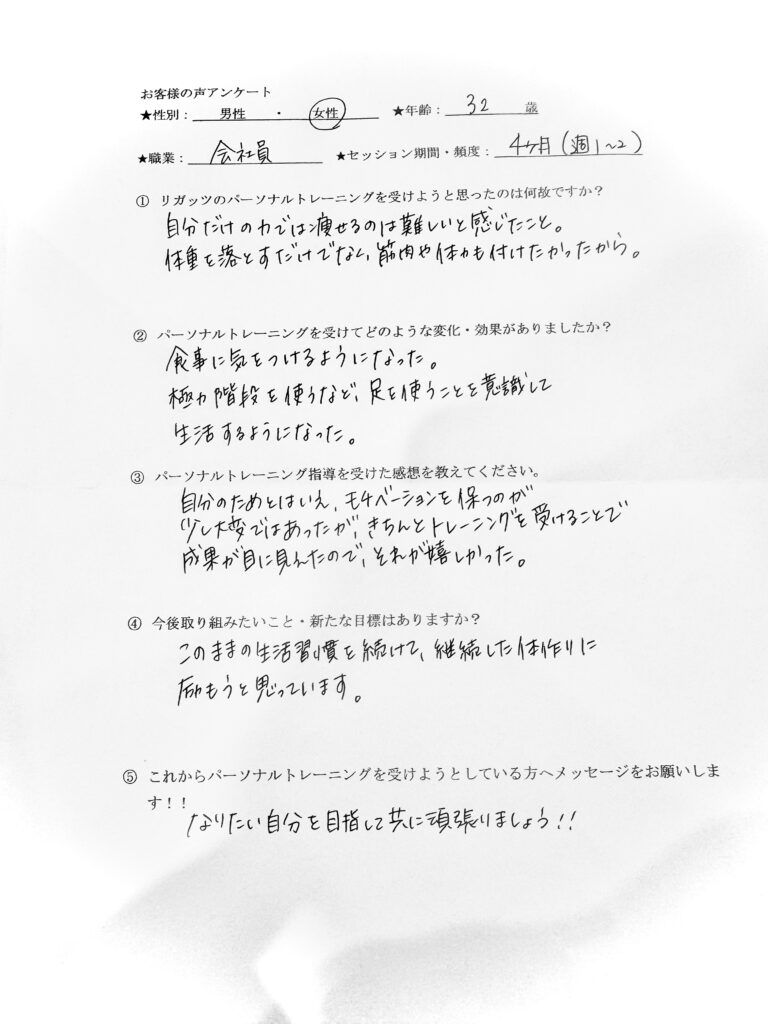 お客様の声アンケート
★性別： 男性 ・ 女性 ★年齢： 32 歳
★職業： 会社員 ★セッション期間・頻度： 4ヶ月(週1~2)
① リガッツのパーソナルトレーニングを受けようと思ったのは何故ですか？
自分だけの力では痩せるのは難しいと感じたこと。
体重を落とすだけでなく、筋肉や体力も付けたかったから。
② パーソナルトレーニングを受けてどのような変化・効果がありましたか？
食事に気をつけるようになった。
極力階段を使うなど、足を使うことを意識して
生活するようになった。
③ パーソナルトレーニング指導を受けた感想を教えてください。
自分のためとはいえ、モチベーションを保つのが
少し大変ではあったが、きちんとトレーニングを受けることで
成果が目に見えたので、それが嬉しかった。
④ 今後取り組みたいこと・新たな目標はありますか？
このままの生活習慣を続けて、継続した体作りに
励もうと思っています。
⑤ これからパーソナルトレーニングを受けようとしている方へメッセージをお願いしま
す！！
なりたい自分を目指して共に頑張りましょう!!